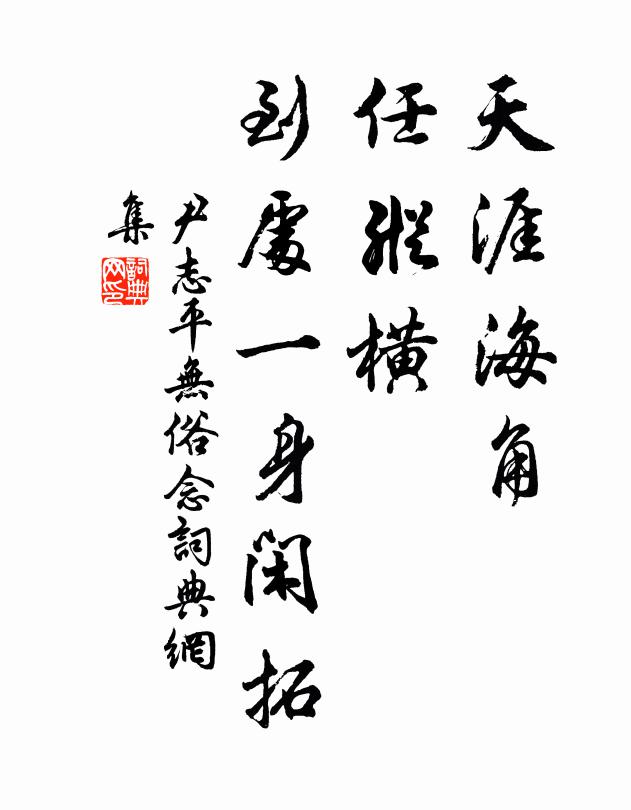 天涯海角
任縱橫
到處一身閑拓
尹志平無俗念詞典網
集
詞典
网印